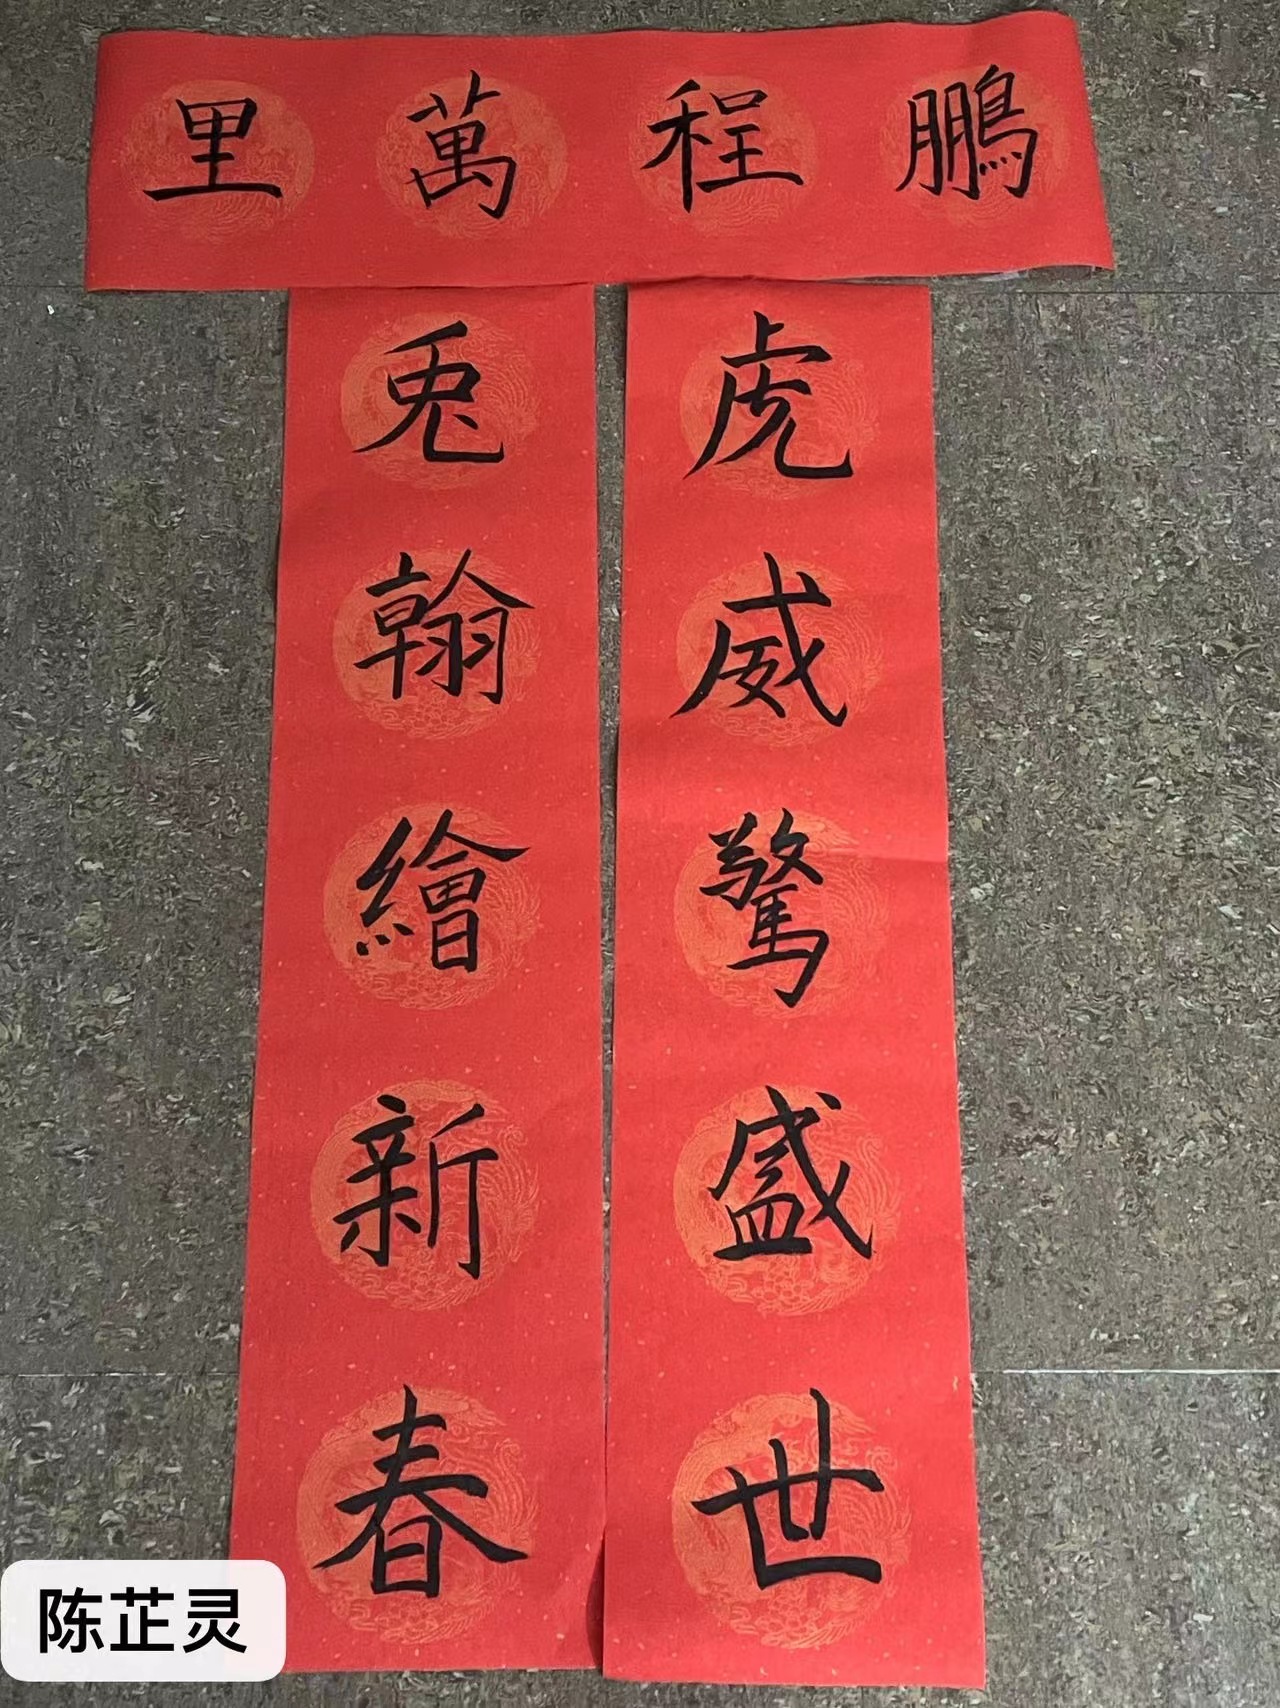 鵬程萬里
虎威驚盛世
兎翰繪新春
陈芷灵